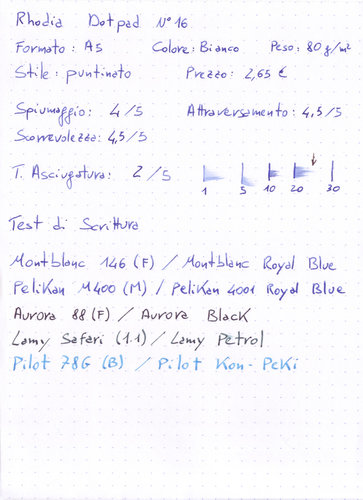 Rhodia Dotpad N°16
Formato: A5 Colore: Bianco Peso: 80 g/m²
Stile: puntinato Prezzo: 2,65 €
Spiumaggio: 4/5 Attraversamento: 4,5/5
Scorrevolezza: 4,5/5
T. Asciugatura: 2/5
1 5 10 20 30
Test di Scrittura
Montblanc 146 (F) / Montblanc Royal Blue
Pelikan M400 (M) / Pelikan 4001 Royal Blue
Aurora 88 (F) / Aurora Black
Lamy Safari (1.1) / Lamy Petrol
Pilot 78G (B) / Pilot Kon-Peki